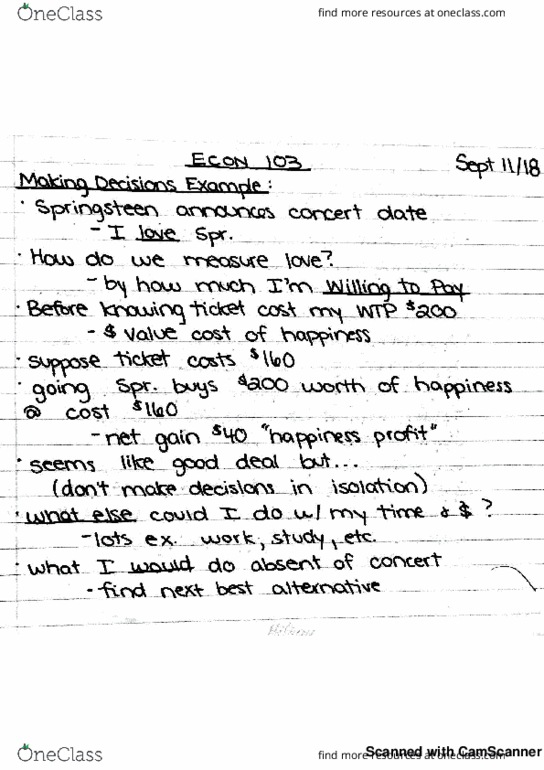 OneClass
find more resources at oneclass.com
ECON 103
Sept 11/18
Making Decisions Example:
· Springsteen announces concert date
- I love Spr.
· How do we measure love?
- by how much I'm Willing to Pay
· Before knowing ticket cost my WTP $200
- $ value cost of happiness
· suppose ticket costs $160
· going Spr. buys $200 worth of happiness
@ cost $160
- net gain $40 "happiness profit"
· seems like good deal but...
(don't make decisions in isolation)
· what else could I do w/ my time & $ ?
- lots ex. work, study, etc.
· what I would do absent of concert
- find next best alternative
OneClass
find more resources at oneclass.com
Scanned with CamScanner